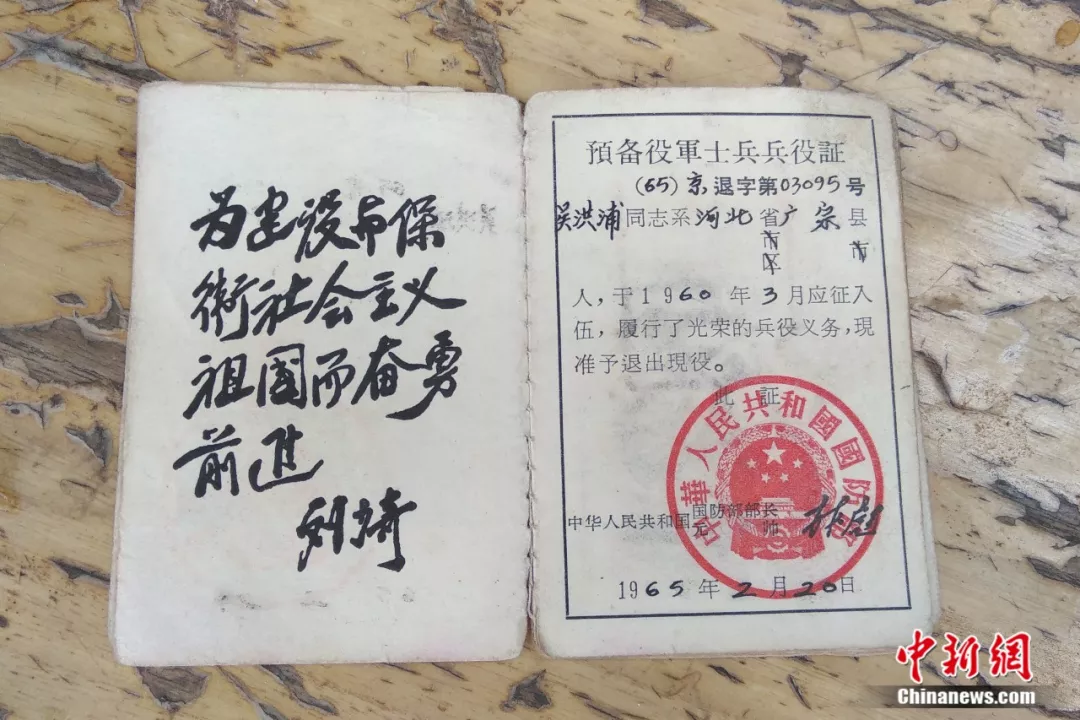 为建设与保
衛社会主义
祖国而奋勇
前进
預备役軍士兵兵役証
(65)京退字第03095号
吴洪浦同志系河北省广宗县
市 市
区
人，于1960年3月应征入
伍，履行了光荣的兵役义务，現
准予退出現役。
此証
中華人民共和國國防部
中华人民共和国国防部部长
元帅 林彪
1965年2月20日
中新网
Chinanews.com